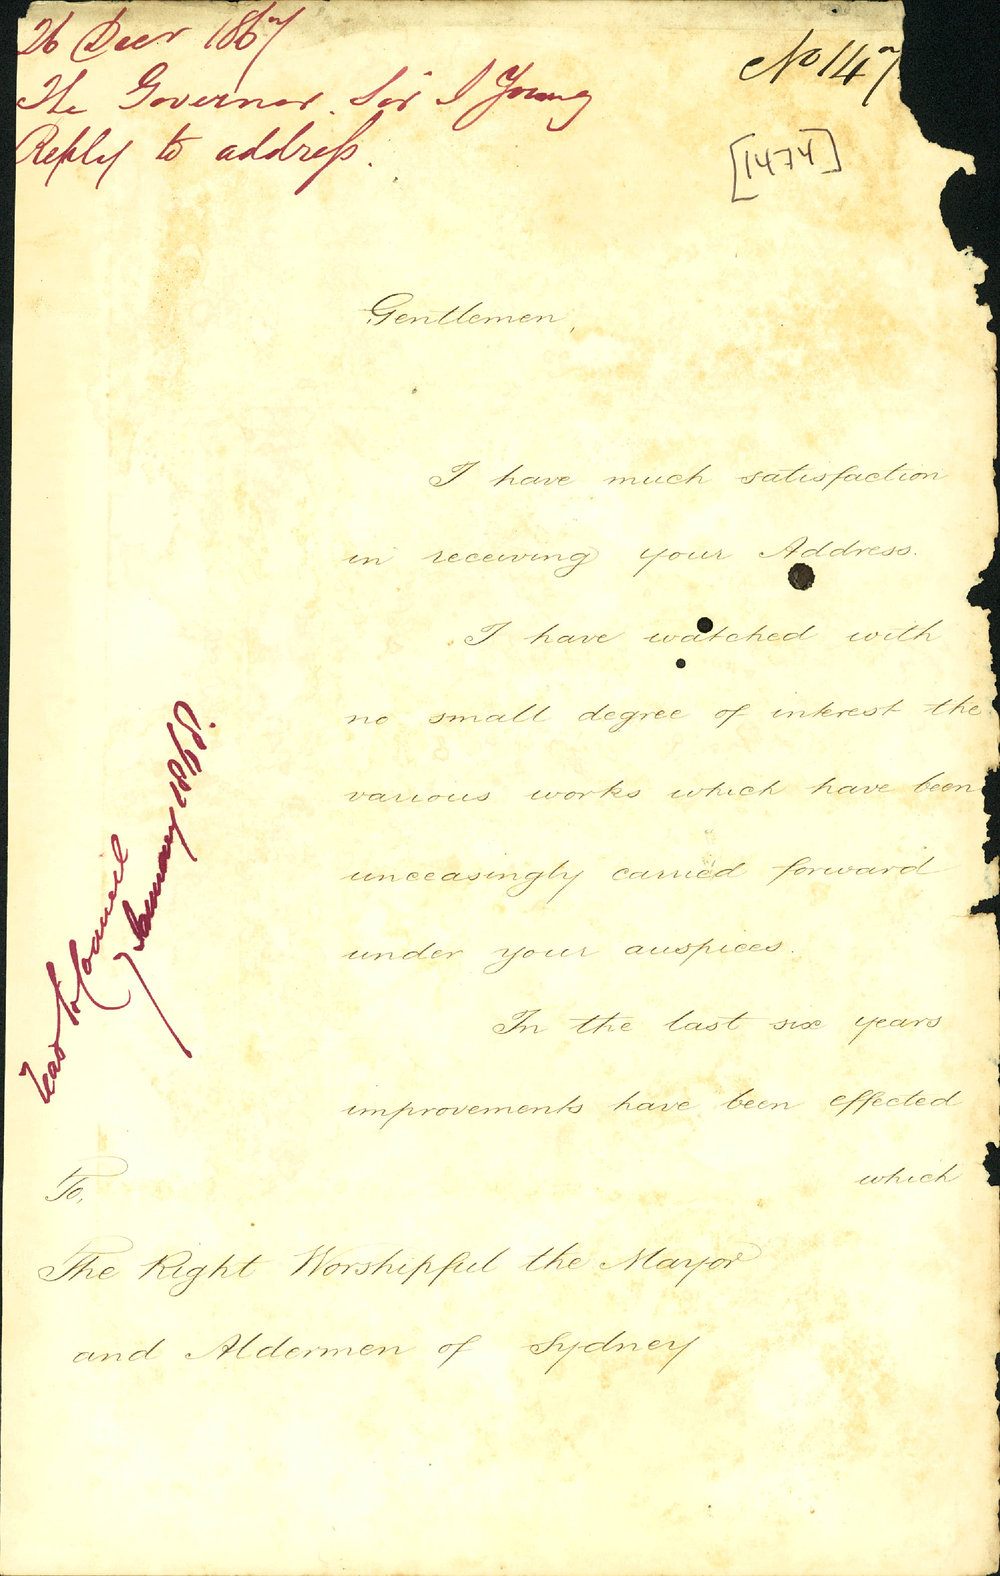 26 Decr 1867
The Governor Sir J Young
Reply to address.
No 147
[1474]
Gentlemen,
I have much satisfaction
in receiving your Address.
I have watched with
no small degree of interest the
various works which have been
unceasingly carried forward
under your auspices.
In the last six years
improvements have been effected
which
to Council
7 January 1868.
To,
The Right Worshipful the Mayor
and Aldermen of Sydney